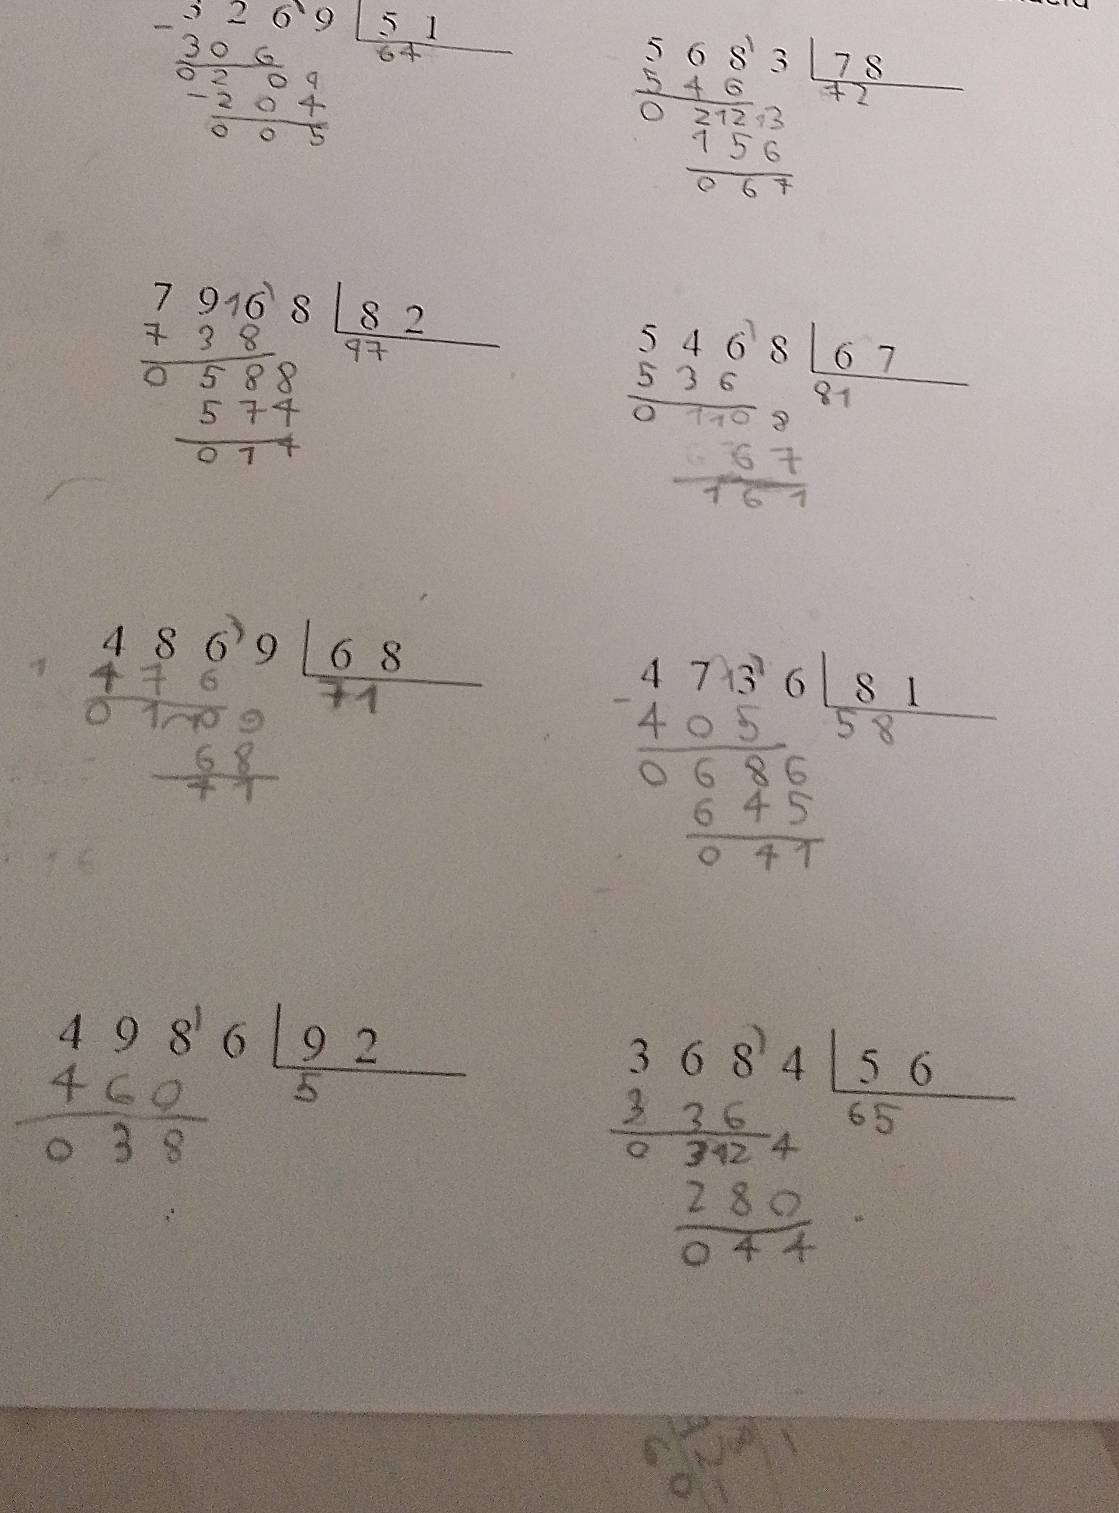 - 3 2 6 9 5 1
3 0 6 64
0 2 0 9
- 2 0 4
0 0 5
5 6 8 3 7 8
5 4 6 72
0 2 12 13
1 5 6
0 6 7
7 9 16 8 8 2
7 3 8 97
0 5 8 8
5 7 4
0 1 4
5 4 6 8 6 7
5 3 6 81
0 1 10 8
6 7
1 6 1
4 8 6 9 6 8
4 7 6 71
0 1 10 9
6 8
7 1
4 7 13 6 8 1
- 4 0 5 5 8
0 6 8 6
6 4 5
0 4 1
4 9 8 6 9 2
4 6 0 5
0 3 8
3 6 8 4 5 6
3 3 6 65
0 3 12 4
2 8 0
0 4 4